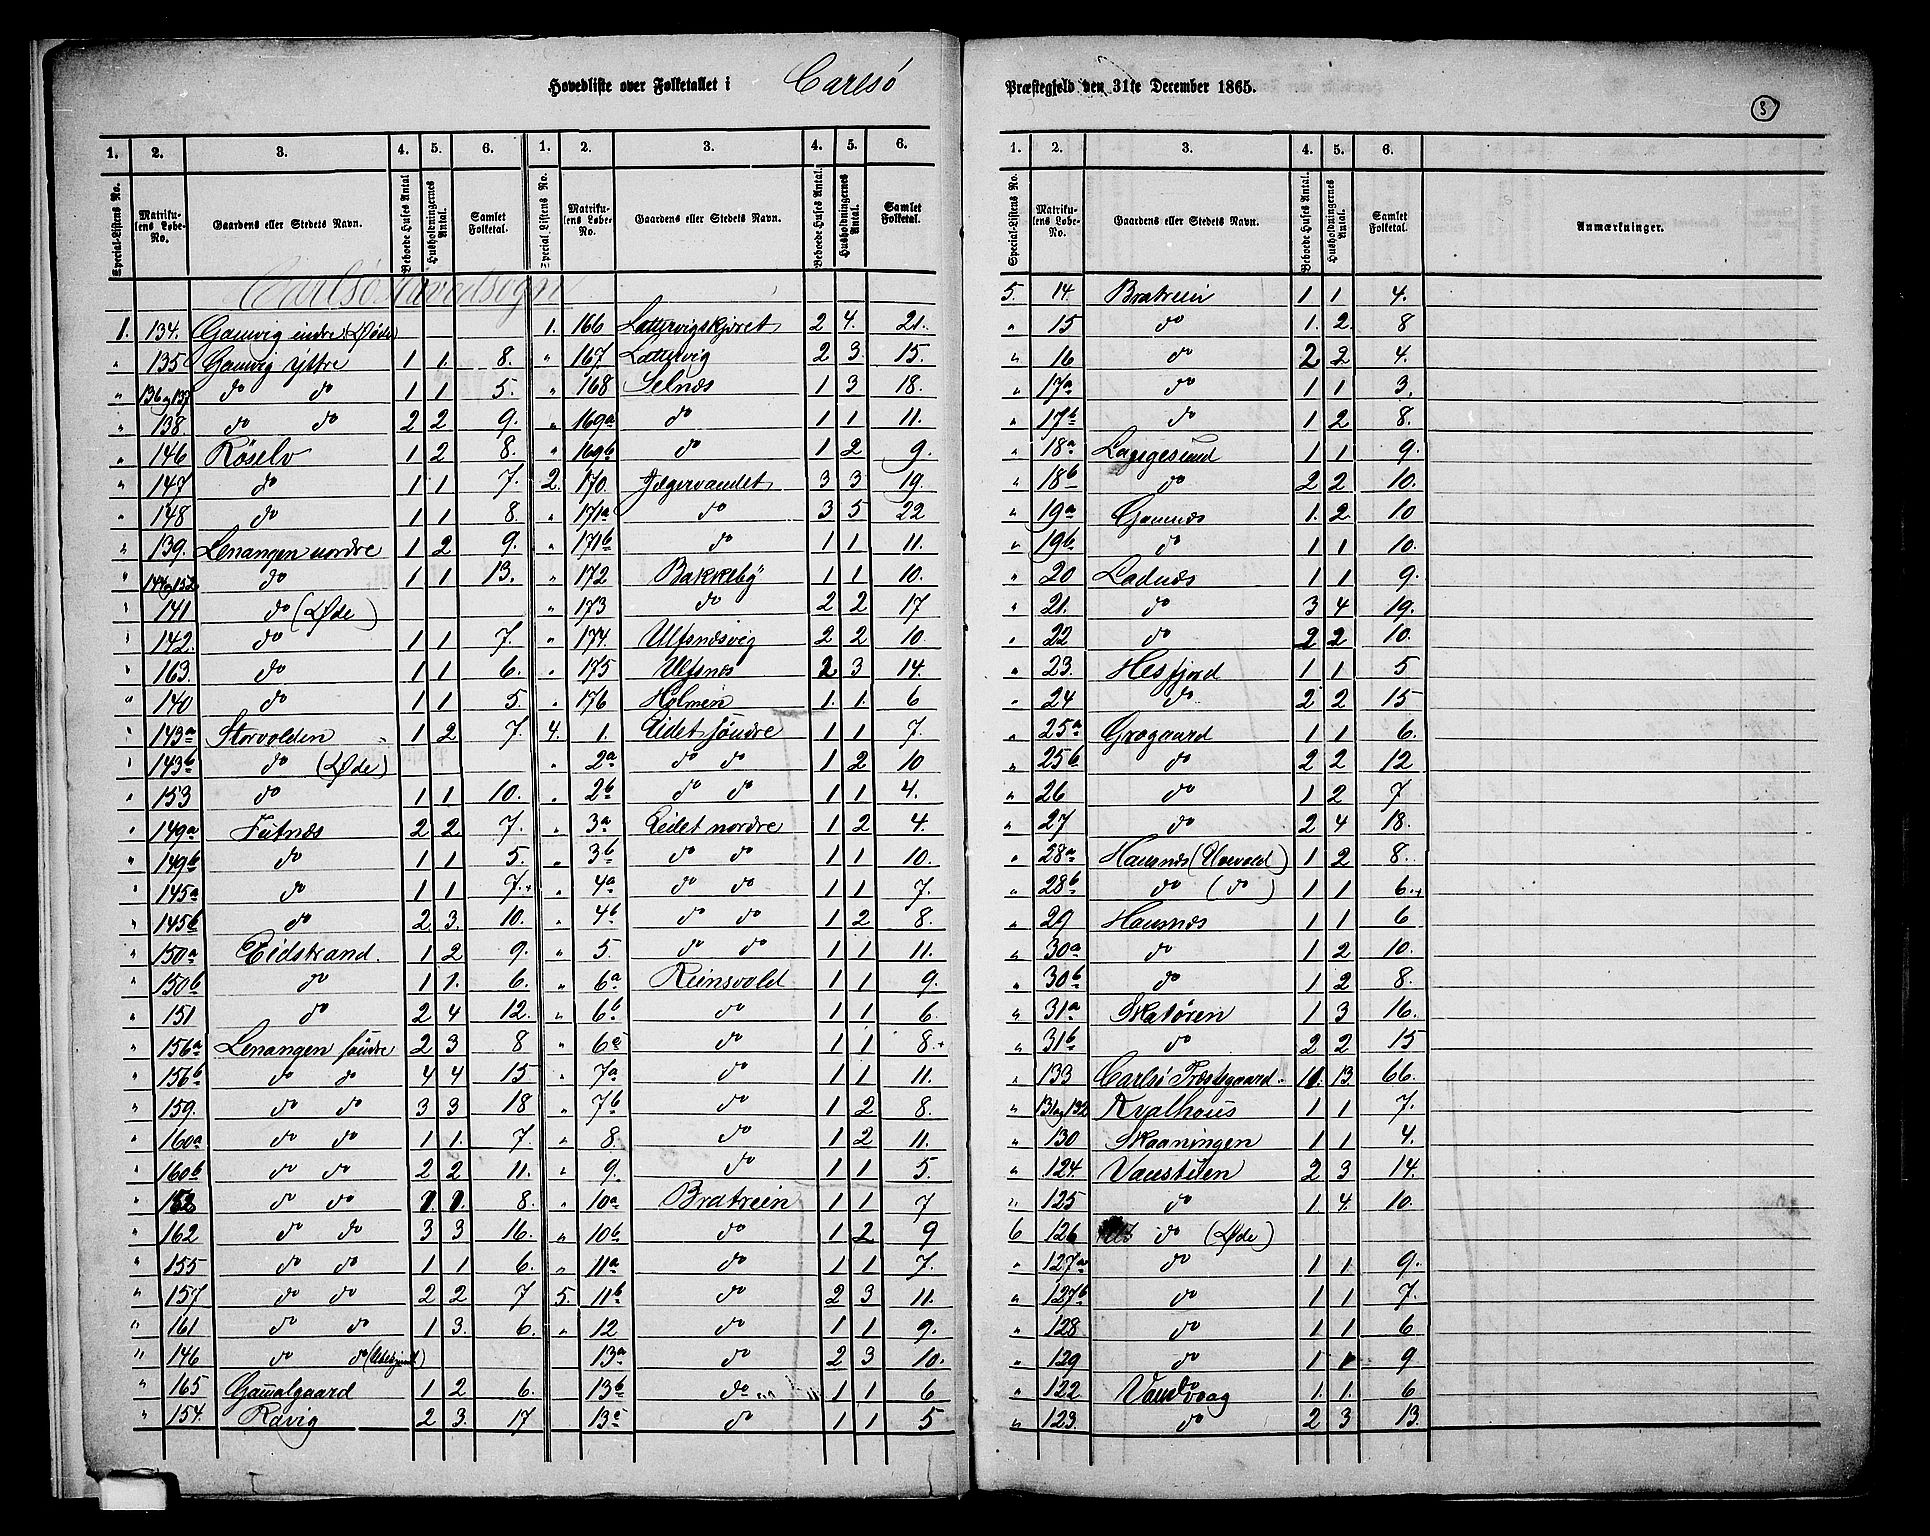 Hovedliste over Folketallet i Carlsö Præstegjeld den 31te December 1865.
8
1. 2. 3. 4. 5. 6.
Special-Listens No. Matrikulens Løbe-No. Gaardens eller Stedets Navn. Beboede Huses Antal Husholdningernes Antal. Samlet Folketal.
Carlsö Hovedsogn
1. 134. Gamvig indre (Øde)
" 135 Gamvig ÿttre 1 1. 8.
" 136 og 137 do do 1 1 5.
" 138 do do 2 2 9.
" 146 Röselv 1 2 8.
" 147 do 1 1 7.
" 148 do 1 1 8.
" 139. Lenangen nordre 1 2 9.
" 144 og 152 do 1 1 13.
" 141 do (Øde)
" 142. do 1 1 7.
" 163. do 1 1 6.
" 140 do 1 1 5.
" 143a Storvolden 1 2 7.
" 143b do (Øde)
" 153 do 1 1 10.
" 149a Jutnæs 2 2 7.
" 149b do 1 1 5.
" 145a do 1 1 7.+
" 145b do 2 3. 10.
" 150a Eidstrand. 1 2 9.
" 150b do 1 1. 6.
" 151 do 2 4 12.
" 156a Lenangen söndre 2 3 8
" 156b do do 4 4 15
" 159. do do 3 3 18
" 160a do do 1 1. 7.
" 160b do do 2 2 11.
" do do 1. 1. 8.
" 162 do do 3 3 16.
" 155 do do 1 1 6.
" 157 do do 2 2 7
" 161 do do 1 3. 6.
" 146 do do
" 165 Gammalgaard 1 2 6.
" 154. Ravig 2 3. 17
1. 2. 3. 4. 5. 6.
Special Listens No. Matrikulens Løbe-No. Gaardens eller Stedets Navn. Beboede Huses Antal. Husholdningernes Antal. Samlet Folketal.
1. 166 Lattervigskjæret 2 4. 21.
" 167. Lattervig 2 3. 15.
" 168 Selnæs 1 3 18.
" 169a do 1 1 11.
" 169b do 1 2 9.
2. 170. Jægervandet 3 3 19.
" 171a do 3 5 22
" 171b do 1 1 11.
" 172 Bakkebÿ 1 1 10.
" 173 do 2 2 17
" 174. Ulfsnæsvig 2 2 10.
" 175 Ulfsnæs 2 3 14.
" 176 Holmen 1. 1. 6
4. 1. Eidet söndre 1 1 7.
" 2a do do 1 2 10
" 2b do do 1 1 4.
" 3a Eidet nordre 1 2 4.
" 3b do do 1 1 10.
" 4a do do 1 1 7.
" 4b do do 1 2 8.
" 5 do do 1 1 11.
" 6a Reinsvold 1 1 9.
" 6b do 1 1 6.
" 6c do 1 1 8+
" 7a do 1 1 11.
" 7b do 1 2 8.
" 8. do 1 2 11.
" 9. do 1 1 5
" 10a Bratrein 1 1 7
" 10b do 1 2 9
" 11a do 1 1 7.
5. 11b do 2 3 11.
" 12 do 1 1 9.
13a do 2 3 10.
13b do 1 1 6
13c do 1 1 5
1. 2. 3. 4. 5. 6.
Special-Listens No. Matrikulens Løbe-No. Gaardens eller Stedets Navn. Beboede Huses Antal. Husholdningernes Antal. Samlet Folketal. Anmærkninger.
5. 14. Bratrein 1 1 4.
" 15 do 1. 2. 8
" 16 do 2 2 4.
" 17a do 1 1 3.
" 17b do 1 2 8.
" 18a Langesund 1 1 9.
" 18b do 2 2 10.
" 19a Gamnæs 1. 2 10
" 19b do 1 1 10.
" 20 Ladnæs 1 1 9.
" 21. do 3 4 19.
" 22 do 2 2 10.
" 23. Hesfjord 1 1 5
" 24 do 2 2 15
" 25a Grøgaard 1 1 6.
" 25b do 2 2 12
" 26 do 1 2 7
" 27 do 2 4 18.
" 28a Hansnæs 1 2 8.
" 28b do (do) 1 1 6.+
" 29 Hansnæs 1 1 6
" 30a do 1 2 10.
" 30b do 1 2 8.
" 31a Skatören 1 3 16.
" 31b do 2 2 15
" 133 Carlsö Præstegaard. 11. 13. 66.
" 131 og 132 Kvalhous 1 1 7.
" 130 Skaaningen 1 1 4.
" 124. Vanstuen 2 3 14.
" 125 do 1 4. 10.
6 126 do (Øde)
" 127a do 1 1 9.
" 127b do 1 1 7.
" 128 do 1 1 6
" 129 do 1 1 9
" 122 Vandvaag 1. 1. 6
" 123. do 2 3 13.